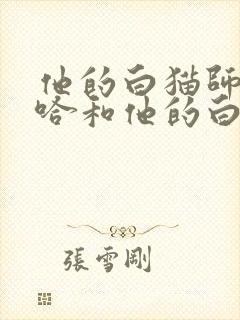 他的白猫師
哈和他的白
張雪剛